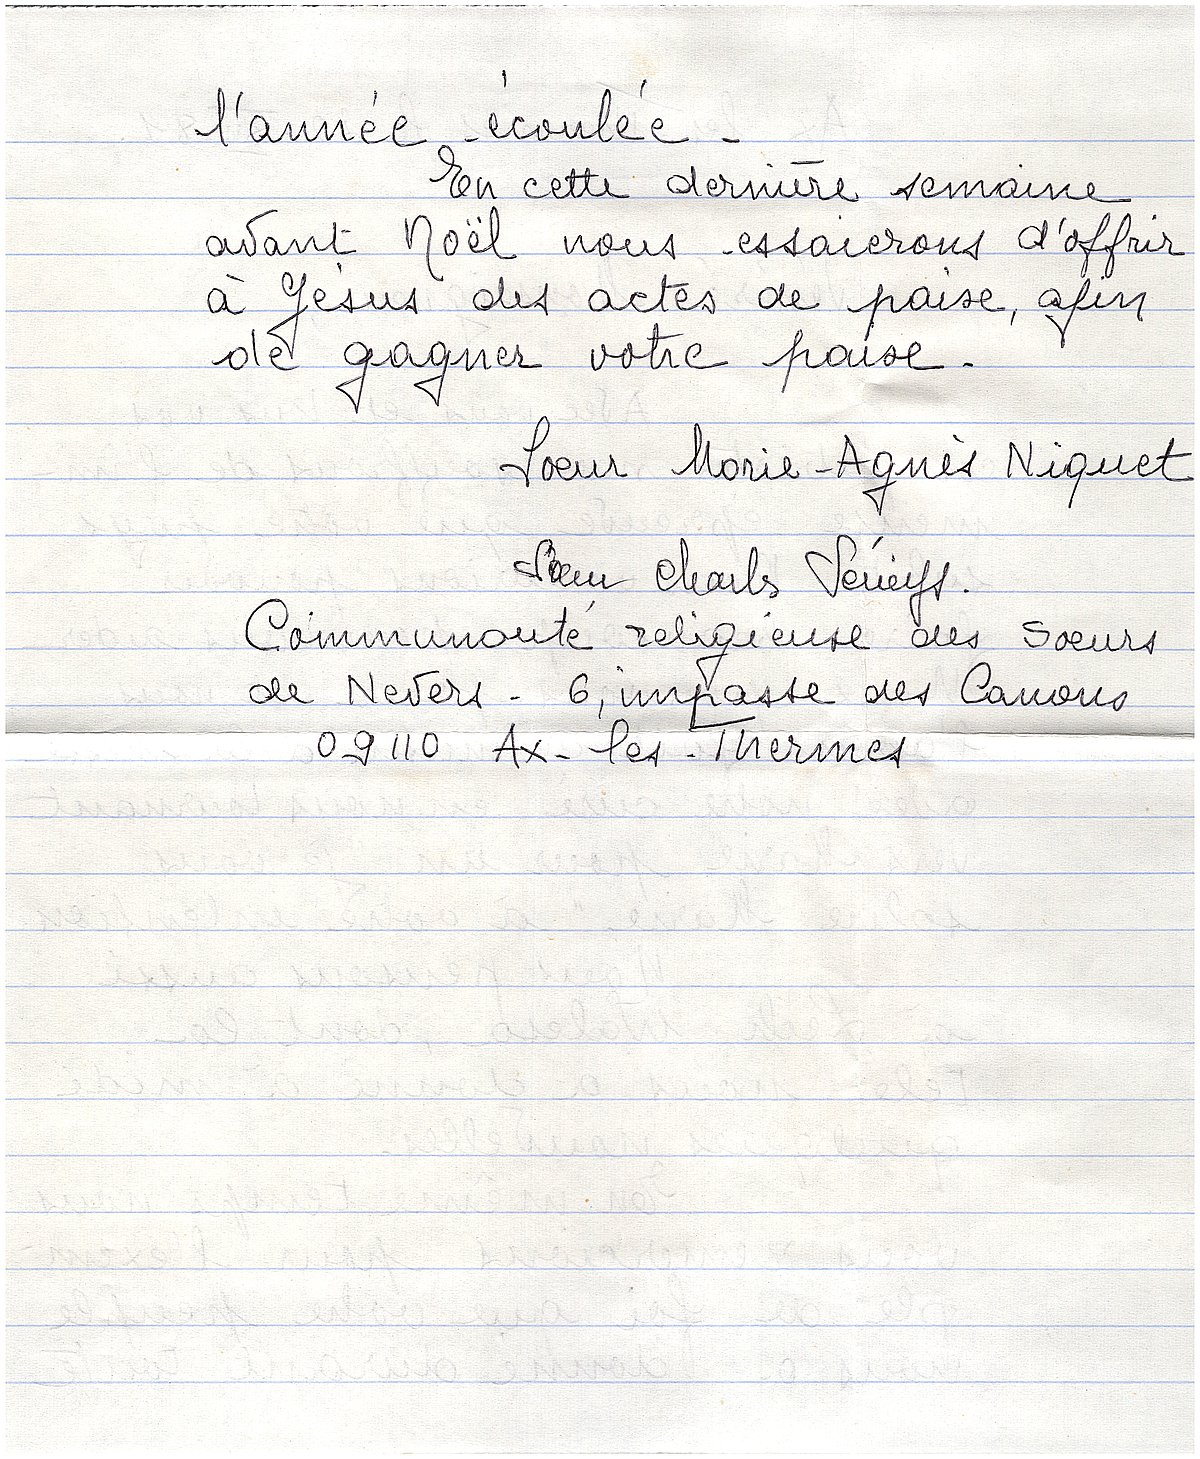 l'année écoulée -
En cette dernière semaine
avant Noël nous essaierons d'offrir
à Jésus des actes de paise, afin
de gagner votre paise -
Soeur Marie-Agnès Niquet
Soeur Charles
Communauté religieuse des Soeurs
de Nevers - 6, impasse des Canons
09110 Ax-les-Thermes